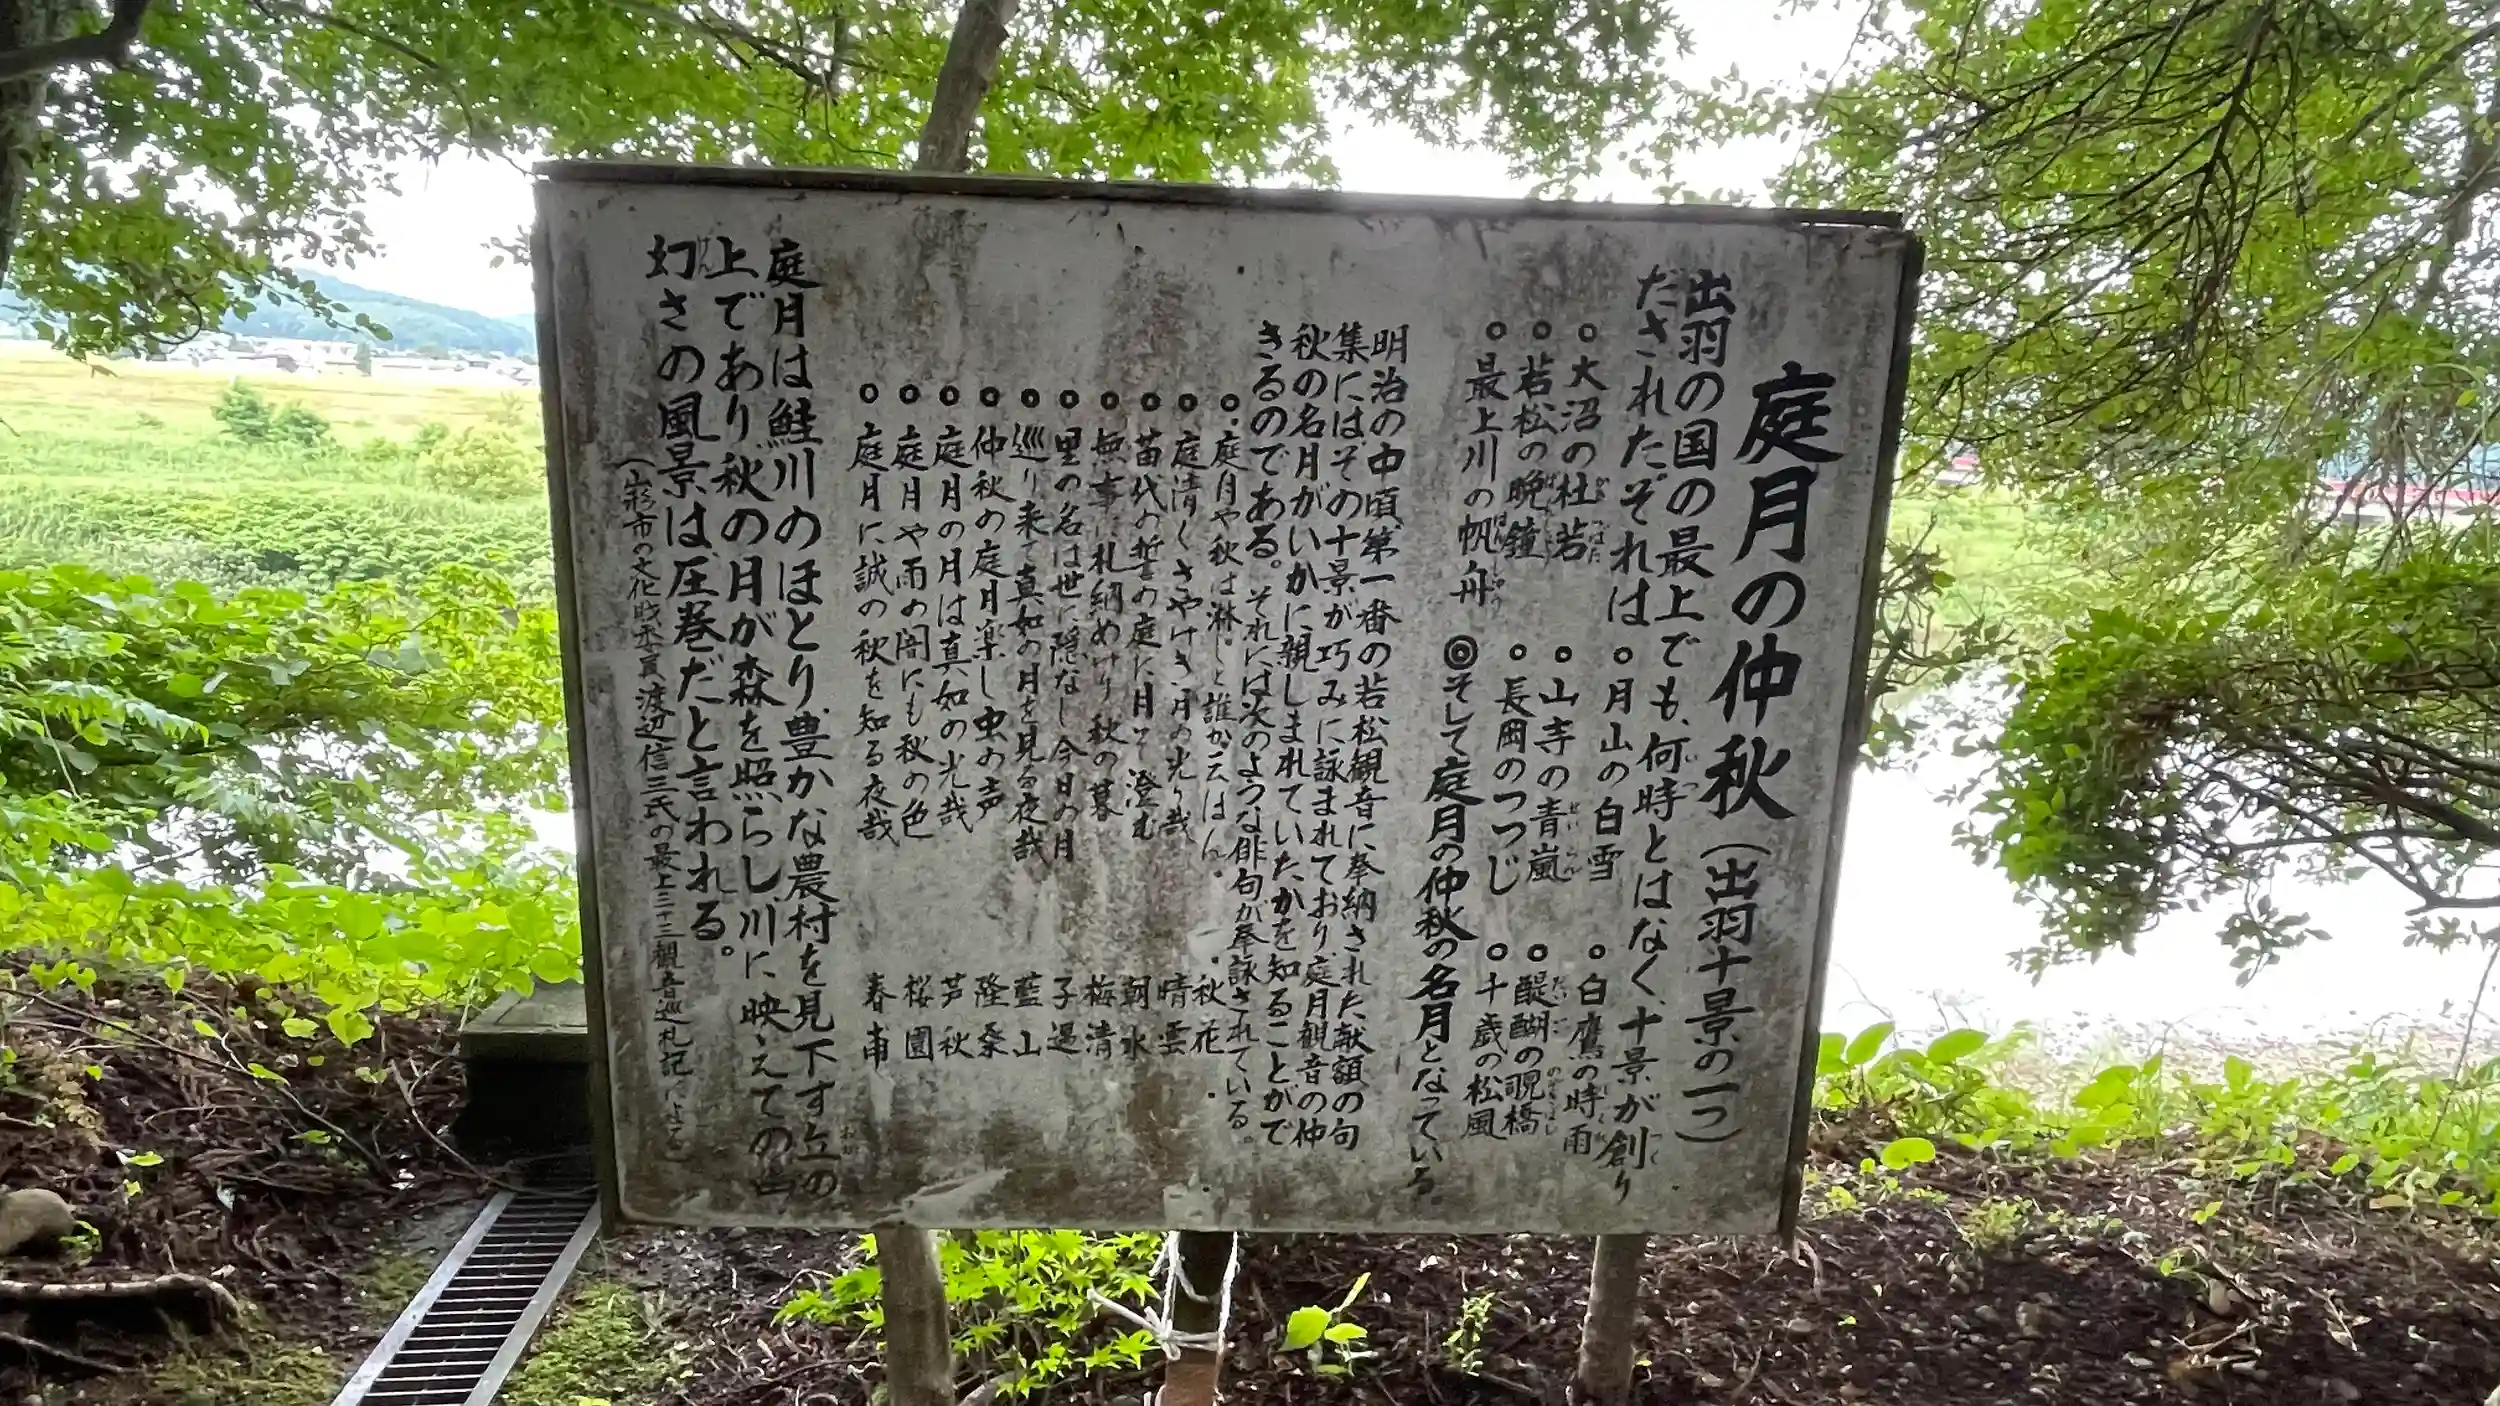 庭月の仲秋(出羽十景の一つ)
出羽の国の最上でも、何時とはなく、十景が創り
だされたぞれは
○月山の白雪
○白鷹の時雨
○大沼の杜若
○山寺の青嵐
○醍醐の覗橋
○若松の晩鐘
○長岡のつつじ
○十歳の松風
○最上川の帆舟
◎そして庭月の仲秋の名月となっている
明治の中頃、第一番の若松観音に奉納された献額の句
集にはその十景が巧みに詠まれており、庭月観音の仲
秋の名月がいかに親しまれていたかを知ることがで
きるのである。それには次のような俳句が奉詠されている。
○庭月や秋は淋しと誰か云はん 秋花
○庭清くさやけき月の光り哉 晴雲
○苗代の誓の庭に月ぞ澄む 朝水
○無事に札納めけり秋の暮 梅清
○里の名は世に隠なし今日の月 子遇
○巡り来て真如の月を見る夜哉 藍山
○仲秋の庭月楽し虫の声 隆桑
○庭月の月は真如の光哉 芦秋
○庭月や雨の闇にも秋の色 桜園
○庭月に誠の秋を知る夜哉 春甫
庭月は鮭川のほとり、豊かな農村を見下す丘の
上であり、秋の月が森を照らし、川に映えての
幻さの風景は圧巻だと言われる。
(山形市の文化財委員渡辺信三氏の最上三十三観音巡礼記による)